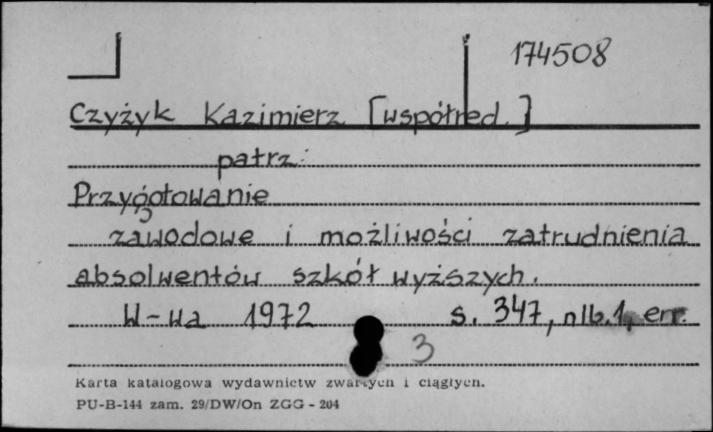 174508
Czyżyk Kazimierz [współred.]
patrz:
Przygotowanie
zawodowe i możliwości zatrudnienia
absolwentów szkół wyższych.
W-wa 1972 s. 347, nlb. 1, err.
3
Karta katalogowa wydawnictw zwartych i ciągłych.
PU-B-144 zam. 29/DW/On ZGG - 204